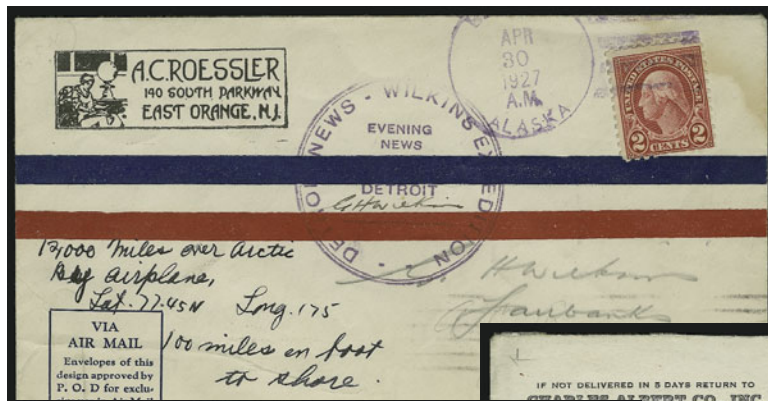 A.C. ROESSLER
140 SOUTH PARKWAY
EAST ORANGE, N.J.
APR
30
1927
A.M.
ALASKA
UNITED STATES POSTAGE
2 CENTS 2
DETROIT NEWS - WILKINS EXPEDITION
EVENING
NEWS
DETROIT
GHWilkins
12,000 miles over Arctic
By airplane,
Lat. 77.45N Long. 175
100 miles on foot
to shore.
G HWilkins
Fairbanks
VIA
AIR MAIL
Envelopes of this
design approved by
P. O. D for exclu-
IF NOT DELIVERED IN 5 DAYS RETURN TO
CHARLES ALBERT CO. INC